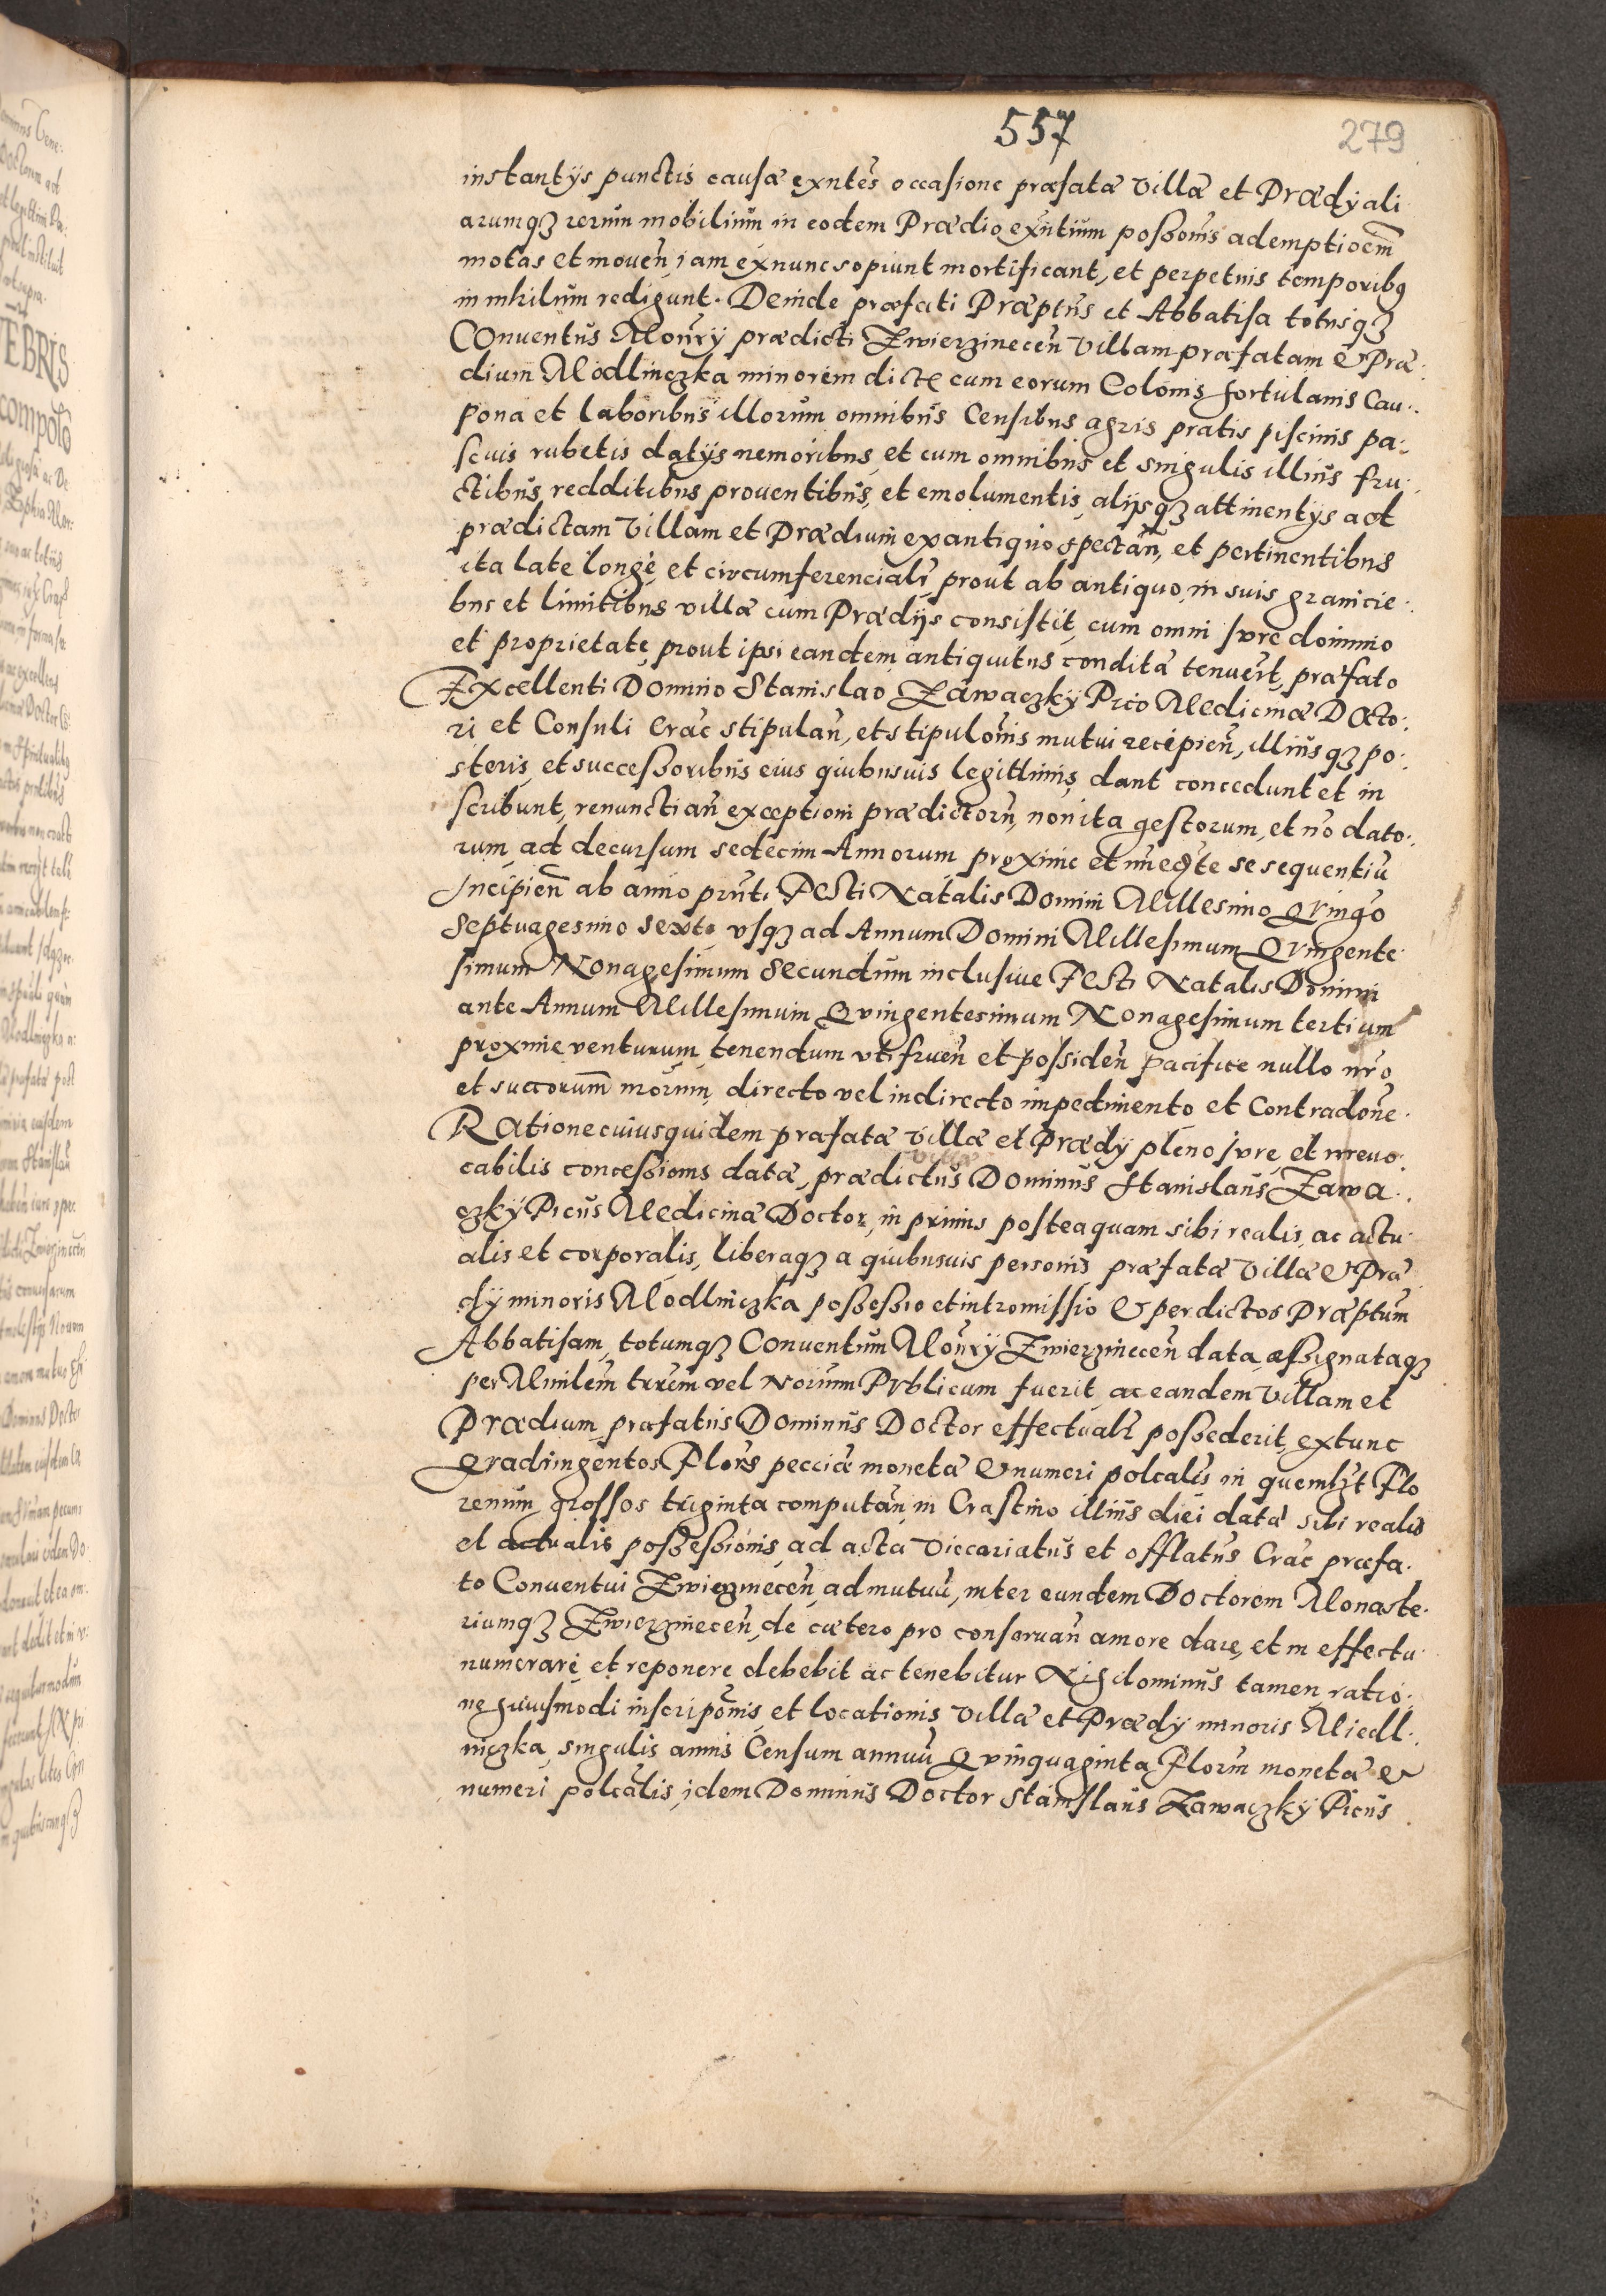 557
279
instantÿs punctis causæ exntes occasione præfatæ Villæ et Prædÿ ali
arumqз rerum mobilium in eodem Prædio exntium possonis ademptioem
motas et mouen jam exnunc sopiunt mortificant, et perpetuis temporibq
in nihilum redigunt. Deinde præfati Præptus et Abbatissa totusqз
COnuentus Monrÿ prædicti Zwierzinecen Villam præfatam & Præ:
dium Modlniczka minorem dictȩ cum eorum Colonis Hortulanis Cau:
pona et laboribus illorum omnibus Censibus agris pratis piscinis pa:
scuis rubetis datÿs nemoribus, et cum omnibus et singulis illius fru:
ctibus, redditibus prouentibus, et emolumentis, alijsqз attinentÿs ad
prædictam Villam et Prædium ex antiquo spectan, et pertinentibus
ita late longè, et circumferencialr, prout ab antiquo, in suis granicie:
bus et limitibus villæ cum Prædijs consistit, cum omni Jure dominio
et proprietate, prout ipsi eandem antiquitus condita tenuert, præfato
EXcellenti Domino Stanislao Zawaczkÿ Pico Medicinæ Docto:
ri et Consuli Crac stipulan, et stipulonis mutui recipien, illiusqз po:
steris, et successoribus eius quibusuis legittimis, dant concedunt et in
scribunt, renunctian exceptioni prædictoru, non ita gestorum, et no dato:
rum, ad decursum sedecim Annorum proxime et imedte se sequentiu
Jncipien ab anno prnti Festi Natalis Domini Millesimo Qvingo
Septuagesimo Sexto vsqз ad Annum Domini Millesimum Qvingente
simum Nonagesimum Secundum inclusiue Festi Natalis Domini
ante Annum Millesimum Qvingentesimum Nonagesimum tertium
proxime venturum, tenendum vti fruen et possiden pacifice nullo nro
et succorum nrorum, directo vel indirecto impedimento et Contradone.
RAtione cuiusquidem præfatæ Villæ et Prædÿ pleno Jure, et irreuo:
cabilis concessionis datæ, prædictus Dominus Stanislaus Zawa:
czkÿ Picus Medicinæ Doctor, in primis posteaquam sibi realis, ac actu
alis et corporalis, liberaqз a quibusuis personis præfatæ Villæ & Præ
dÿ minoris Modlniczka possessio et intromissio & per dictos Præptum
Abbatissam, totumqз Conuentum Monrÿ Zwierzinecen data, assignataqз
per Ministem trrem vel Norium Publicum fuerit, ac eandem Villam et
Prædium, præfatus Dominus Doctor effectualr possederit, extunc
Qvadringentos Flors pecciæ monetæ & numeri polcalis in quemlzt Flo
renum, grossos triginta computan, in Crastino illius diei datæ sibi realis
et actualis possessionis, ad acta Viccariatus et offlatus Crac præfa.
to Conuentui Zwierzinecen, ad mutuu, inter eundem Doctorem Monaste:
riumqз Zwierzinecen, de cætero pro conseruan amore dare, et in effectu
numerare, et reponere debebit ac tenebitur Nihilominus tamen, ratio:
ne huiusmodi inscriponis, et locationis Villæ et Prædÿ minoris Miedl:
niczka, singulis annis Censum annuu Qvinquaginta Florm monetæ &
numeri polcalis, jdem Dominus Doctor Stanislaus Zawaczkÿ Picus